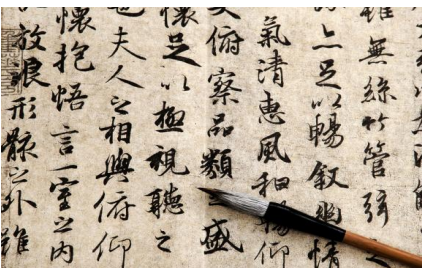 雖無絲竹管弦之
亦足以暢叙幽情
氣清惠風和暢仰
大俯察品類之盛
懷足以極視聽之
夫人之相與俯仰
懷抱悟言一室之内
放浪形骸之外雖